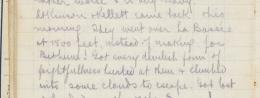 Atkinson & Kellett came back this
morning. They went over La Bassée
at 1500 feet, instead of making for
Bethune! Got every devilish form of
frightfulness hurled at them & climbed
into some clouds to escape. Got lost